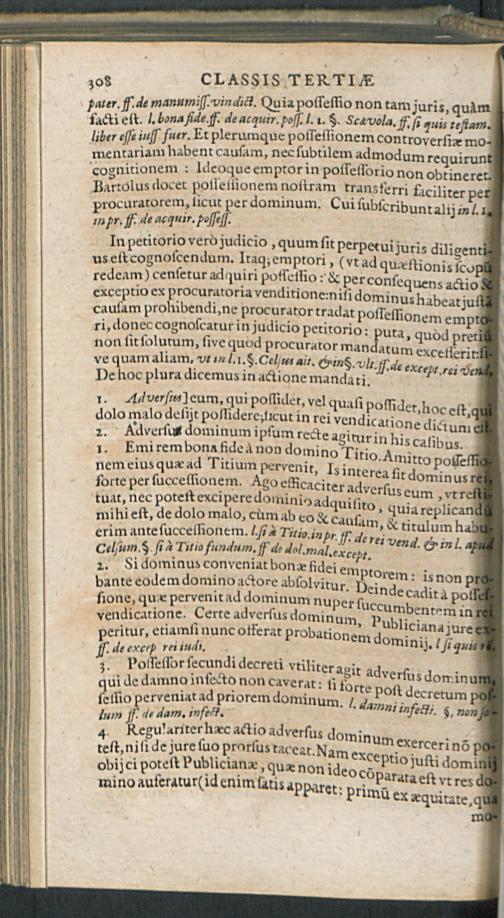 308 CLASSIS TERTIÆ
pater. ff. de manumiss. vindict. Quia possessio non tam juris, quàm
facti est. l. bona fide. ff. de acquir. poss. l. 1. §. Scævola. ff. si quis testam.
liber esse iuss fuer. Et plerumque possessionem controversiæ mo-
mentariam habent causam, nec subtilem admodum requirunt
cognitionem : Ideoque emptor in possessorio non obtineret.
Bartolus docet possessionem nostram transferri faciliter per
procuratorem, sicut per dominum. Cui subscribunt alij in l. 1.
in pr. ff. de acquir. possess.
In petitorio verò judicio, quum sit perpetui juris diligenti-
us est cognoscendum. Itaq; emptori, (vt ad quæstionis scopũ
redeam) censetur adquiri possessio : & per consequens actio &
exceptio ex procuratoria venditione: nisi dominus habeat justã
causam prohibendi, ne procurator tradat possessionem empto-
ri, donec cognoscatur in judicio petitorio: puta, quòd pretiũ
non sit solutum, sive quòd procurator mandatum excesserit: si-
ve quam aliam. vt in l. 1. §. Celsus ait. & in §. vlt. ff. de except. rei vend.
De hoc plura dicemus in actione mandati.
1. Adversus] eum, qui possidet, vel quasi possidet, hoc est, qui
dolo malo desijt possidere; sicut in rei vendicatione dictum est.
2. Adversus dominum ipsum recte agitur in his casibus.
1. Emi rem bona fide à non domino Titio. Amitto possessio-
nem eius quæ ad Titium pervenit, Is interea fit dominus rei,
forte per successionem. Ago efficaciter adversus eum, vt resti-
tuat, nec potest excipere dominio adquisito, quia replicandũ
mihi est, de dolo malo, cùm ab eo & causam, & titulum habu-
erim ante successionem. l. si à Titio. in pr. ff. de rei vend. & in l. apud
Celsum. §. si à Titio fundum. ff de dol. mal. except.
2. Si dominus conveniat bonæ fidei emptorem : is non pro-
bante eodem domino actore absolvitur. Deinde cadit à posses-
sione, quæ pervenit ad dominum nuper succumbentem in rei
vendicatione. Certe adversus dominum, Publiciana jure ex-
peritur, etiamsi nunc offerat probationem dominij. l si quis rē.
ff. de excep rei iudi.
3. Possessor secundi decreti vtiliter agit adversus dominum,
qui de damno infecto non caverat : si forte post decretum pos-
sessio perveniat ad priorem dominum. l. damni infecti. §. non so-
lum ff. de dam. infect.
4. Regulariter hæc actio adversus dominum exerceri nō po-
test, nisi de jure suo prorsus taceat. Nam exceptio justi dominij
obijci potest Publicianæ, quæ non ideo cōparata est vt res do-
mino auferatur (id enim satis apparet: primũ ex æquitate, qua
mo-